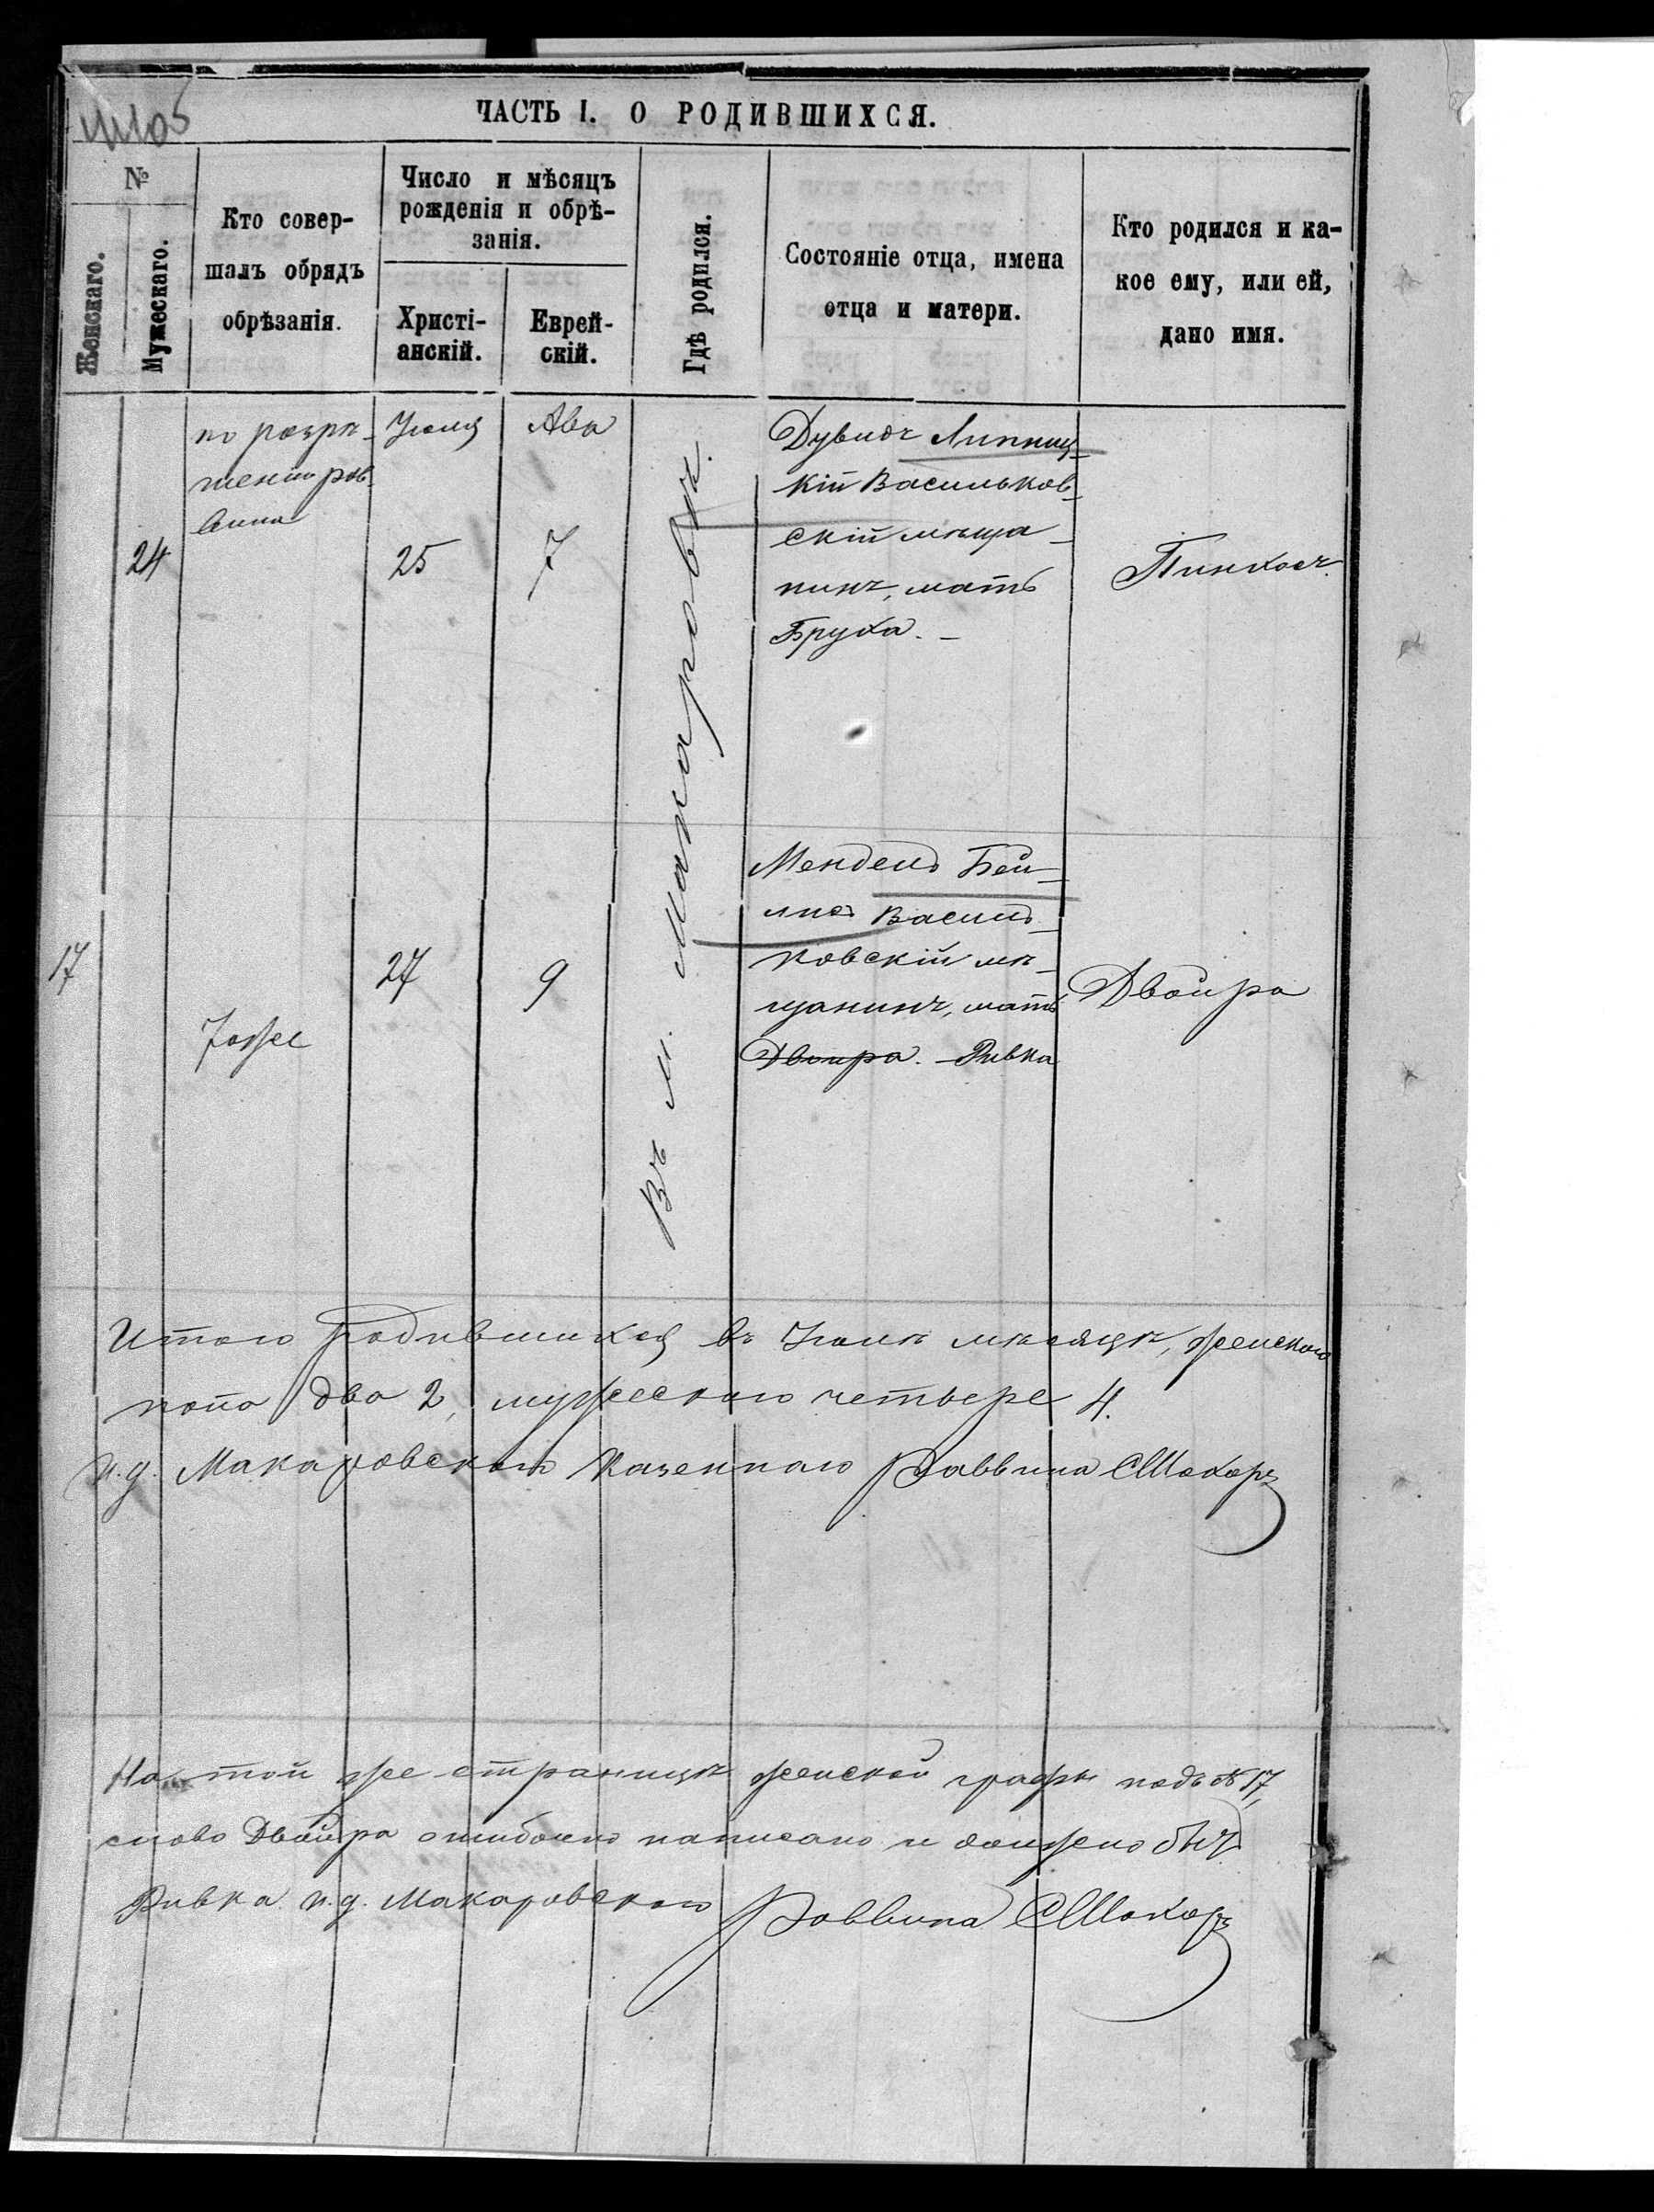 ЧАСТЬ I. О РОДИВШИХСЯ.
№
Женскаго.
Мужескаго.
Кто совер-
шалъ обрядъ
обрѣзанія.
Число и мѣсяцъ
рожденія и обрѣ-
занія.
Христі-
анскій.
Еврей-
скій.
Гдѣ родился.
Состояніе отца, имена
отца и матери.
Кто родился и ка-
кое ему, или ей,
дано имя.
24
по разрѣ-
шенію рав-
вина
Іюля
25
Ава
7
Въ м. Макаровѣ.
Дувидъ Липниц-
кій Васильков-
скій мѣща-
нинъ, мать
Бруха. -
Пинхосъ.
17
27
9
Мендель Бей-
лис Василь-
ковскій мѣ-
щанинъ, мать
Двойра. - Ривка
Двойра
Итого родившихся въ Іюлѣ мѣсяцѣ, женскаго
пола два 2, мужескаго четыре 4.
И. д. Макаровскаго Казеннаго Раввина СШохоръ
На той же страницѣ женской графы подъ № 17,
слово Двойра ошибочно написано и должно быть
Ривка. И. д. Макаровскаго Раввина СШохоръ